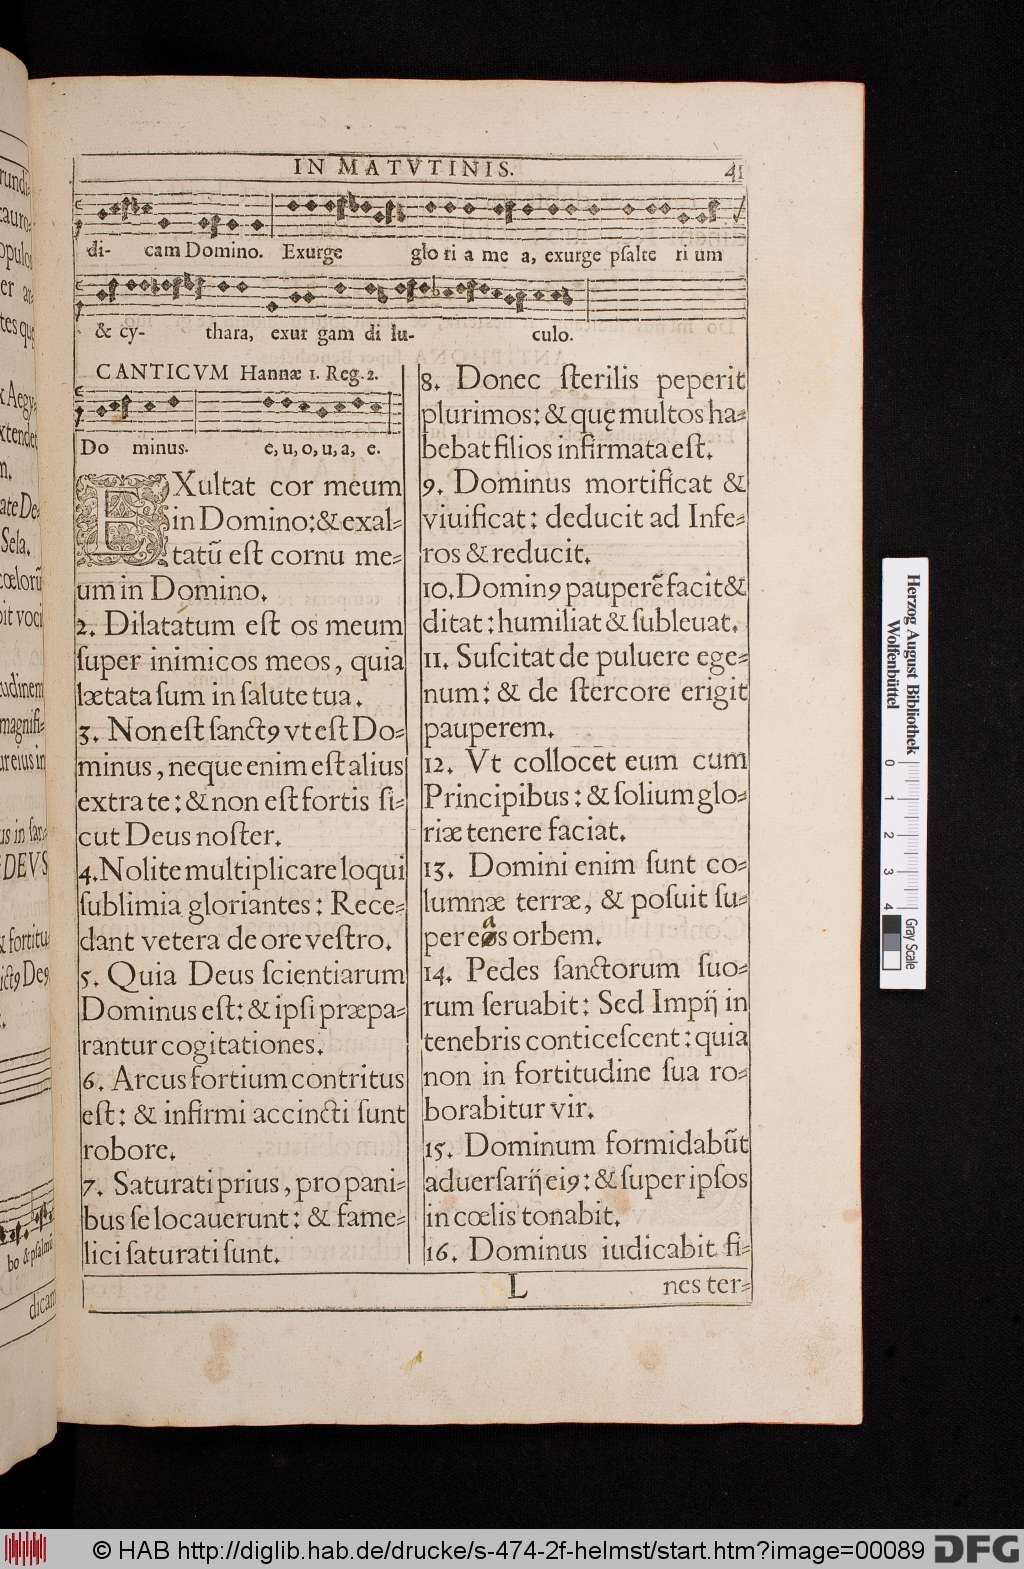 IN MATVTINIS. 41
di- cam Domino. Exurge glo ri a me a, exurge pſalte ri um
& cy- thara, exur gam di lu- culo.
CANTICVM Hannæ 1. Reg. 2.
Do minus. e, u, o, u, a, e.
EXultat cor meum
in Domino: & exal-
tatũ eſt cornu me-
um in Domino.
2. Dilatatum eſt os meum
ſuper inimicos meos, quia
lætata ſum in ſalute tua.
3. Non eſt ſanctꝰ vt eſt Do-
minus, neque enim eſt alius
extra te: & non eſt fortis ſi-
cut Deus noſter.
4. Nolite multiplicare loqui
ſublimia gloriantes: Rece-
dant vetera de ore veſtro.
5. Quia Deus ſcientiarum
Dominus eſt: & ipſi præpa-
rantur cogitationes.
6. Arcus fortium contritus
eſt: & infirmi accincti ſunt
robore.
7. Saturati prius, pro pani-
bus ſe locauerunt: & fame-
lici ſaturati ſunt.
8. Donec ſterilis peperit
plurimos: & quę multos ha-
bebat filios infirmata eſt.
9. Dominus mortificat &
viuificat: deducit ad Infe-
ros & reducit.
10. Dominꝰ pauperẽ facit &
ditat: humiliat & ſubleuat.
11. Suſcitat de puluere ege-
num: & de ſtercore erigit
pauperem.
12. Vt collocet eum cum
Principibus: & ſolium glo-
riæ tenere faciat.
13. Domini enim ſunt co-
lumnæ terræ, & poſuit ſu-
per eas orbem.
14. Pedes ſanctorum ſuo-
rum ſeruabit: Sed Impij in
tenebris conticeſcent: quia
non in fortitudine ſua ro-
borabitur vir.
15. Dominum formidabũt
aduerſarij eiꝰ: & ſuper ipſos
in cœlis tonabit.
16. Dominus iudicabit fi-
L nes ter-
Herzog August Bibliothek
Wolfenbüttel
0 1 2 3 4
Gray Scale
© HAB http://diglib.hab.de/drucke/s-474-2f-helmst/start.htm?image=00089 DFG